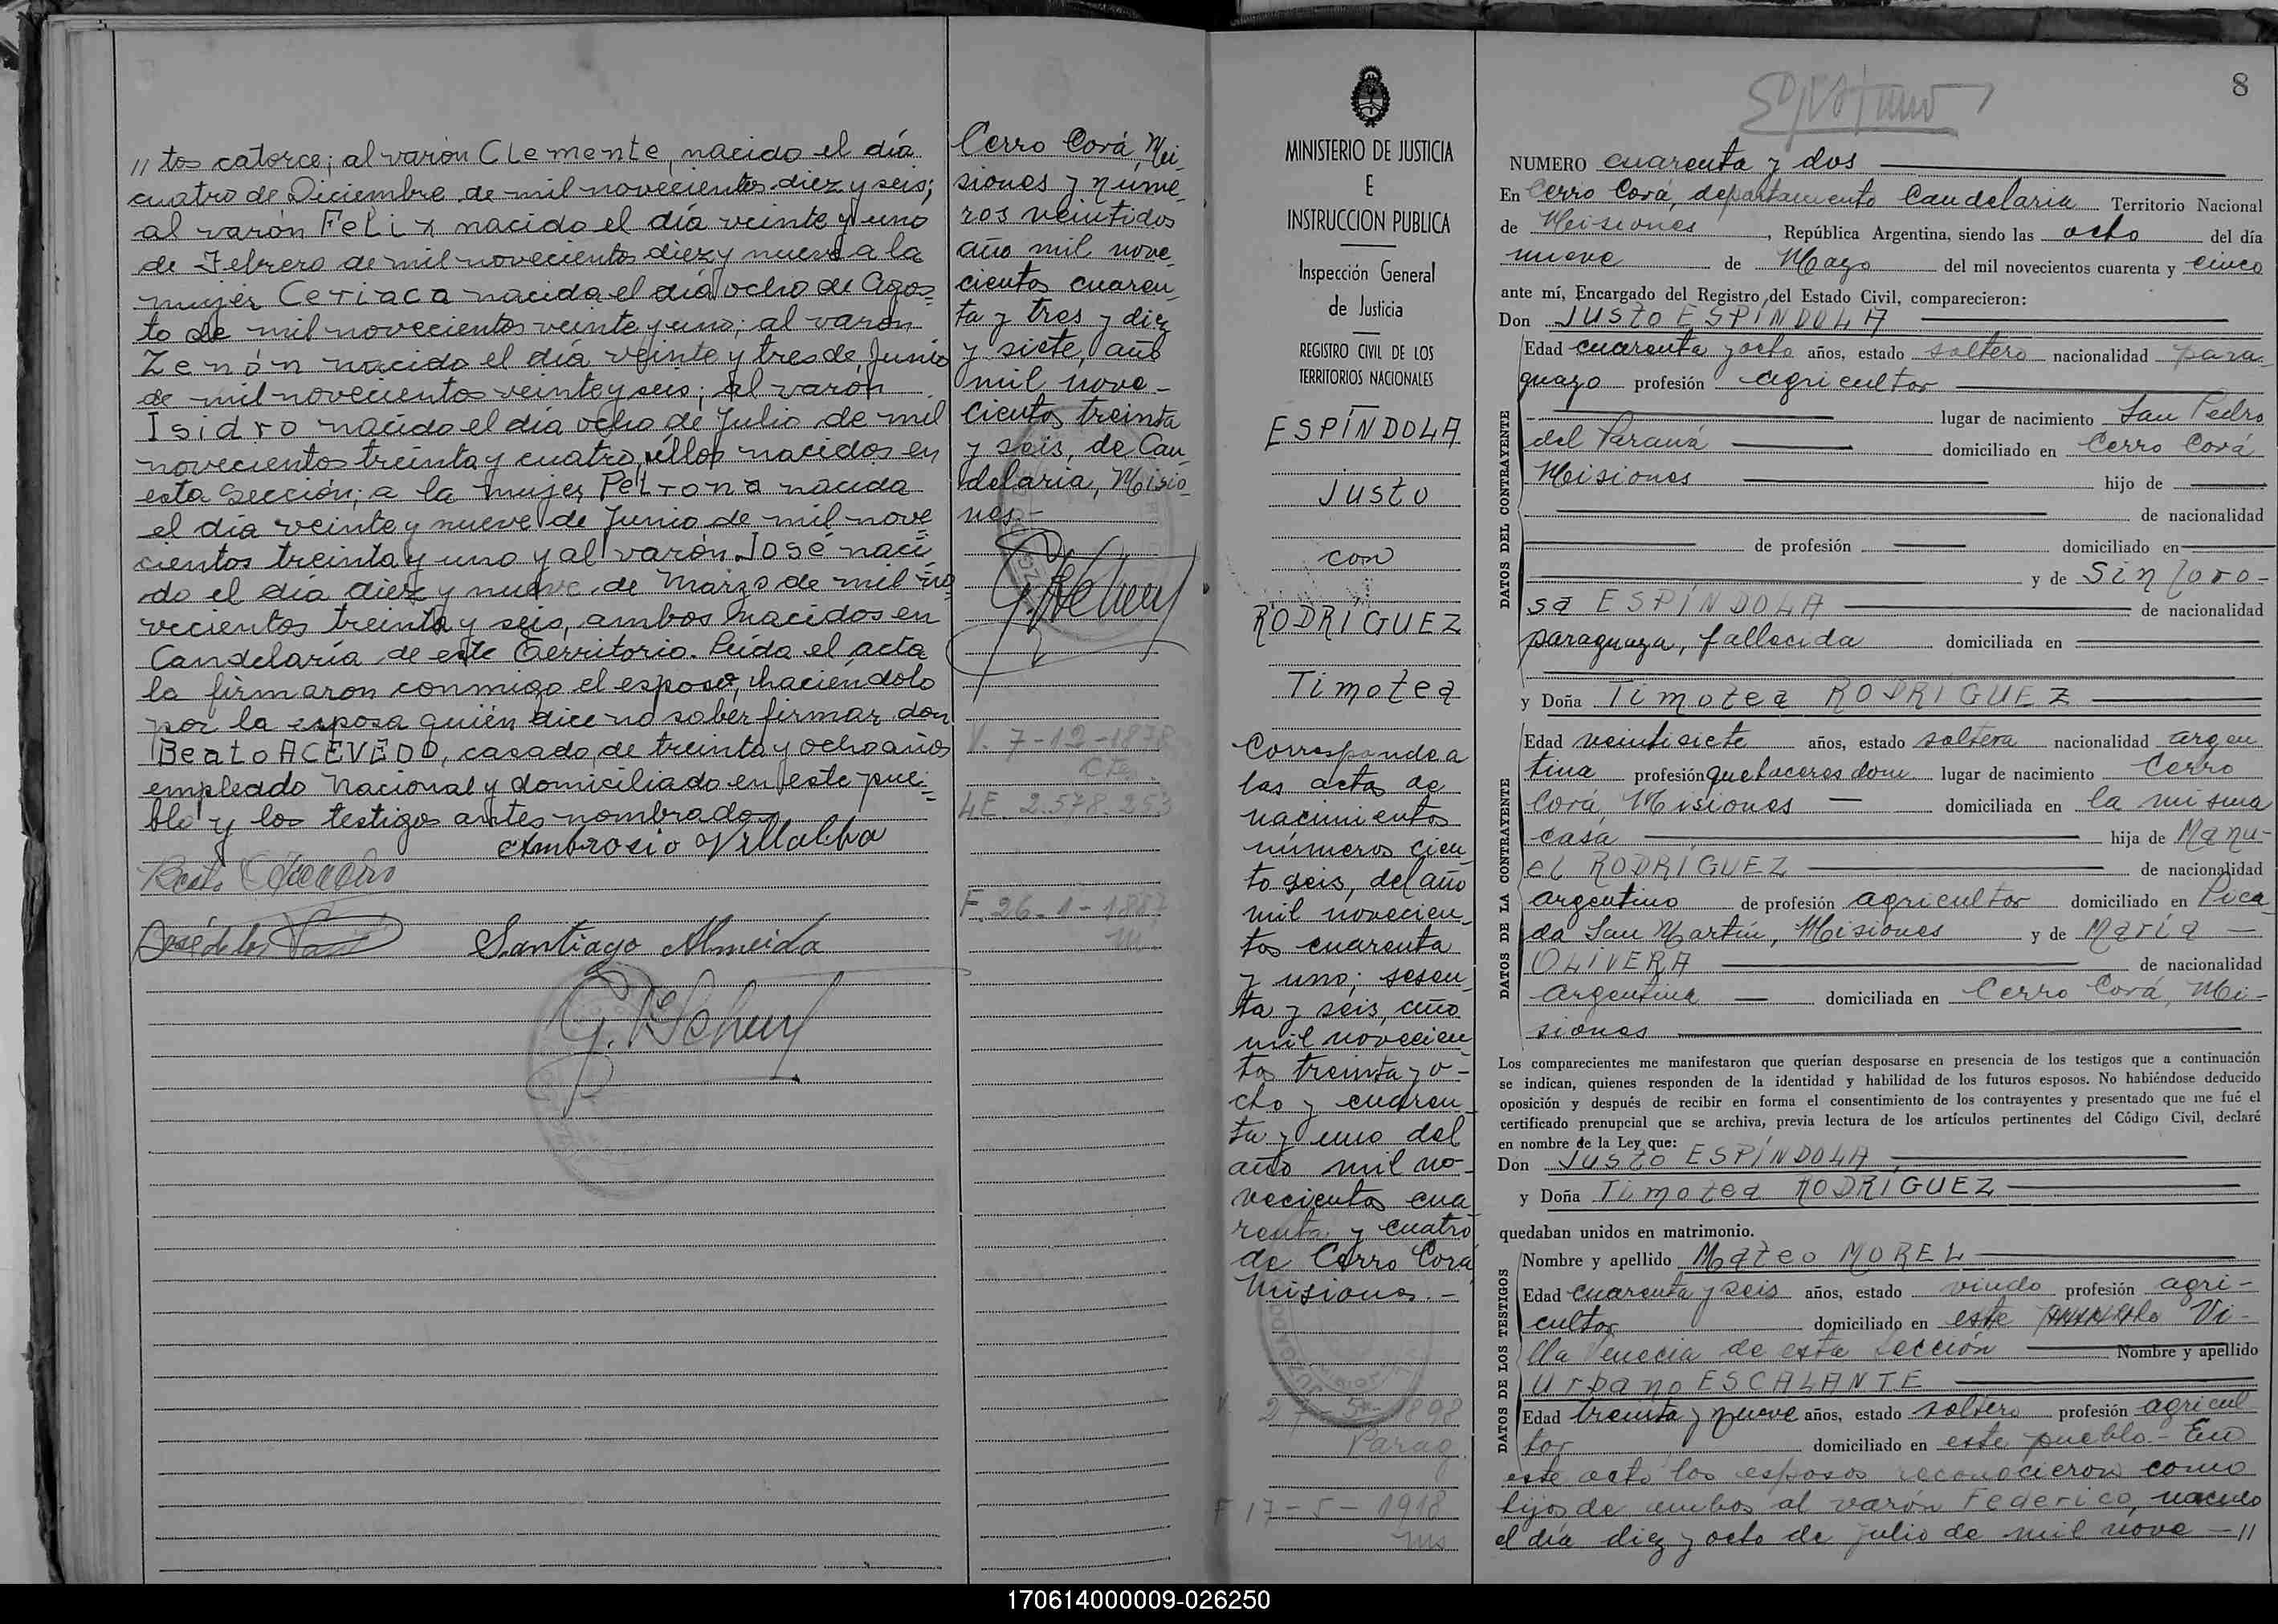 // tos catorce; al varón Clemente, nacido el día
cuatro de Diciembre de mil novecientos diez y seis;
al varón Felix nacido el día veinte y uno
de Febrero de mil novecientos diez y nueve a la
mujer Ceriaca nacida el día ocho de Agos=
to de mil novecientos veinte y uno; al varón
Zenón nacido el día veinte y tres de Junio
de mil novecientos veinte y seis; al varón
Isidro nacido el día ocho de Julio de mil
novecientos treinta y cuatro, ellos nacidos en
esta Sección; a la mujer Petrona nacida
el día veinte y nueve de Junio de mil nove
cientos treinta y uno y al varón José naci
do el día diez y nueve de Marzo de mil no
vecientos treinta y seis, ambos nacidos en
Candelaria de este Territorio. Leída el acta
la firmaron conmigo el esposo, haciéndolo
por la esposa quién dice no saber firmar don
Beato ACEVEDO, casado, de treinta y ocho años
empleado Nacional y domiciliado en este pue=
blo y los testigos antes nombrados
Ambrosio Villalba
Beato Acevedo
José de la Paz
Santiago Almeida
Cerro Corá, Mi-
siones y núme-
ros veintidos
año mil nove-
cientos cuaren-
ta y tres y diez
y siete, año
mil nove-
cientos treinta
y seis, de Can-
delaria, Misio-
nes.-
V. 7-12-1878
Ctes.
L.E. 2.578.253
F. 26-1-1887
m
MINISTERIO DE JUSTICIA
E
INSTRUCCION PUBLICA
Inspección General
de Justicia
REGISTRO CIVIL DE LOS
TERRITORIOS NACIONALES
ESPÍNDOLA
Justo
con
RODRÍGUEZ
Timotea
Corresponde a
las actas de
nacimientos
números cien-
to seis, del año
mil novecien-
tos cuarenta
y uno; sesen-
ta y seis, año
mil novecien-
tos treinta y o-
cho y cuaren-
ta y uno del
año mil no-
vecientos cua-
renta y cuatro
de Cerro Corá
Misiones.-
V. 27-5-1898
Parag.
F 17-5-1918
ms
8
NUMERO cuarenta y dos
En Cerro Corá, departamento Candelaria Territorio Nacional
de Misiones, República Argentina, siendo las ocho del día
nueve de Mayo del mil novecientos cuarenta y cinco
ante mí, Encargado del Registro del Estado Civil, comparecieron:
Don Justo ESPÍNDOLA
DATOS DEL CONTRAYENTE
Edad cuarenta y ocho años, estado soltero nacionalidad para-
guayo profesión agricultor
lugar de nacimiento San Pedro
del Paraná domiciliado en Cerro Corá
Misiones hijo de
de nacionalidad
de profesión domiciliado en
y de Sinforo-
sa ESPÍNDOLA de nacionalidad
paraguaya, fallecida domiciliada en
y Doña Timotea RODRÍGUEZ
DATOS DE LA CONTRAYENTE
Edad veintisiete años, estado soltera nacionalidad argen
tina profesión quehaceres dom. lugar de nacimiento Cerro
Corá, Misiones — domiciliada en la misma
casa hija de Manu-
el RODRÍGUEZ de nacionalidad
argentino de profesión agricultor domiciliado en Pica
da San Martín, Misiones y de María —
OLIVERA de nacionalidad
argentina — domiciliada en Cerro Corá, Mi-
siones
Los comparecientes me manifestaron que querían desposarse en presencia de los testigos que a continuación
se indican, quienes responden de la identidad y habilidad de los futuros esposos. No habiéndose deducido
oposición y después de recibir en forma el consentimiento de los contrayentes y presentado que me fué el
certificado prenupcial que se archiva, previa lectura de los artículos pertinentes del Código Civil, declaré
en nombre de la Ley que:
Don Justo ESPÍNDOLA
y Doña Timotea RODRÍGUEZ
quedaban unidos en matrimonio.
DATOS DE LOS TESTIGOS
Nombre y apellido Mateo MOREL
Edad cuarenta y seis años, estado viudo profesión agri-
cultor domiciliado en este Vi-
lla Venecia de esta Sección Nombre y apellido
Urbano ESCALANTE
Edad treinta y nueve años, estado soltero profesión agricul
tor domiciliado en este pueblo.- En
este acto los esposos reconocieron como
hijos de ambos al varón Federico, nacido
el día diez y ocho de julio de mil nove — //
170614000009-026250